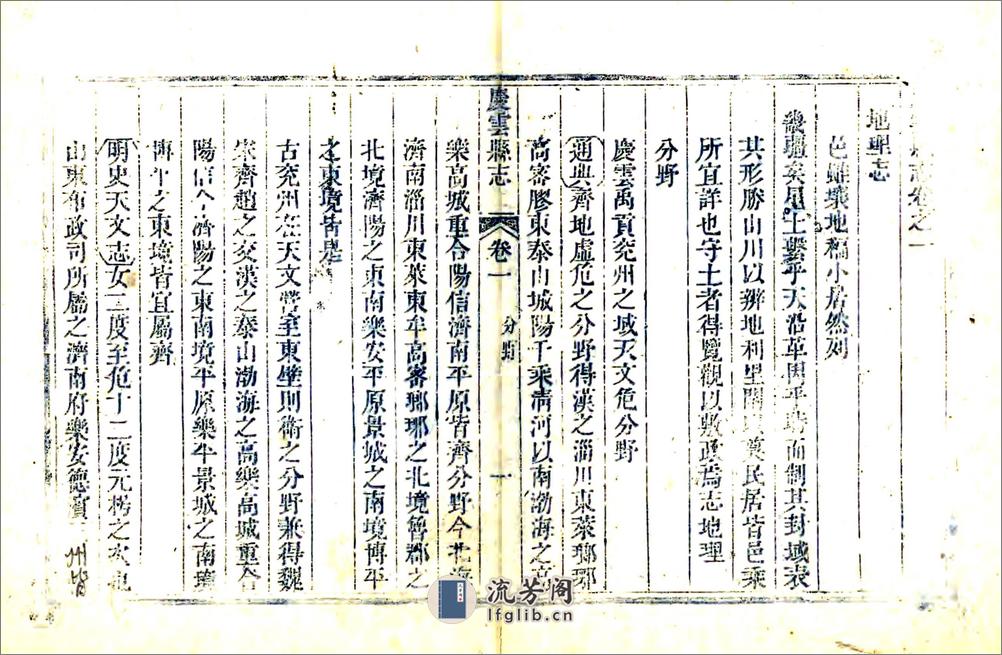 縣志卷之一
地理志
邑雖壤地褊小居然列
幾疆矣星土繫乎天沿革因乎時而制其封域表
其形勝山川以辨地利里閭以奠民居皆邑乘
所宜詳也守土者得覽觀以敷政焉志地理
分野
慶雲禹貢兖州之域天文危分野
通典齊地虛危之分野得漢之淄川東萊瑯琊
高密膠東泰山城陽千乘清河以南渤海之高
慶雲縣志
卷一
分野
一
樂高城重合陽信濟南平原皆齊分野今北海
濟南淄川東萊東牟高密瑯琊之北境魯郡之
北境濟陽之東南樂安平原景城之南境博平
之東境皆是
古兖州在天文營室東壁則衛之分野兼得魏
宋齊趙之交漢之泰山渤海之高樂高城重合
陽信今濟陽之東南境平原樂安景城之南境
博平之東境皆宜屬齊
明史天文志女二度至危十二度元枵之次也
山東布政司所屬之濟南府樂安德濱
州皆
流芳阁
lfglib.cn